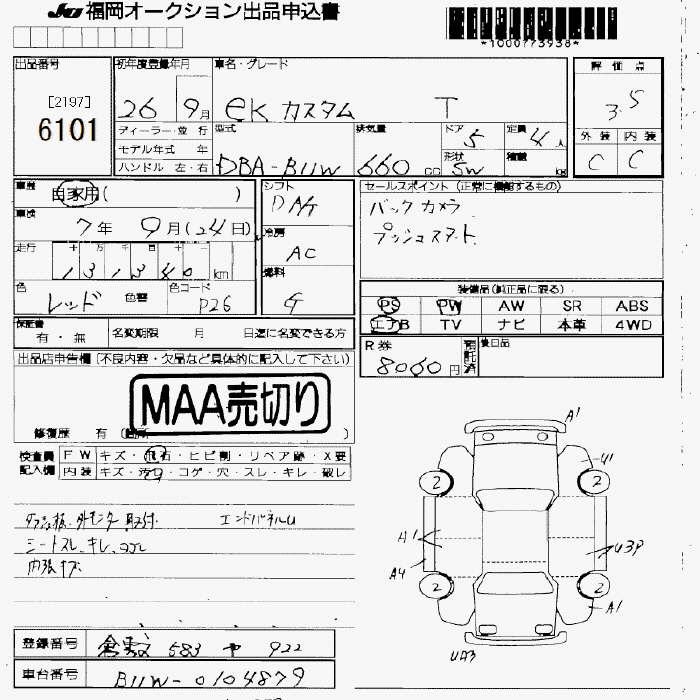 JU 福岡オークション出品申込書
*1000773938*
出品番号
[2197]
6101
初年度登録年月
26 9月
車名・グレード
eK カスタム T
評価点
3.5
外装 内装
C C
ディーラー・並行
モデル年式 年
ハンドル 左・右
型式
DBA-B11W
排気量
660 CC
ドア
5
形状
SW
定員
4人
積載
kg
車歴
自家用( )
車検
7年 9月(24日)
走行
十 万 千 百 十
13134０ km
色
レッド 色替
色コード
P26
シフト
D A/T
冷房
AC
燃料
G
セールスポイント (正常に機能するもの)
バックカメラ
プッシュスタート
装備品(純正品に限る)
PS PW AW SR ABS
エアB TV ナビ 本革 4WD
保証書
有・無
名変期限 月 日迄に名変できる方
R券
8060円
預託済
後日品
出品店申告欄(不良内容・欠品など具体的に記入して下さい)
MAA売切り
修復歴 有 (箇所 )
検査員記入欄
FW キズ・飛石・ヒビ割・リペア跡・X要
内装 キズ・汚れ・コゲ・穴・スレ・キレ・破レ
外モニター取付 エンドパネルU
シートスレ、キレ、コゲ
内張キズ
A1
U1
2
2
A1
A4
U3P
2
2
A1
UA3
登録番号
倉敷 583 や 922
車台番号
B11W-0104879